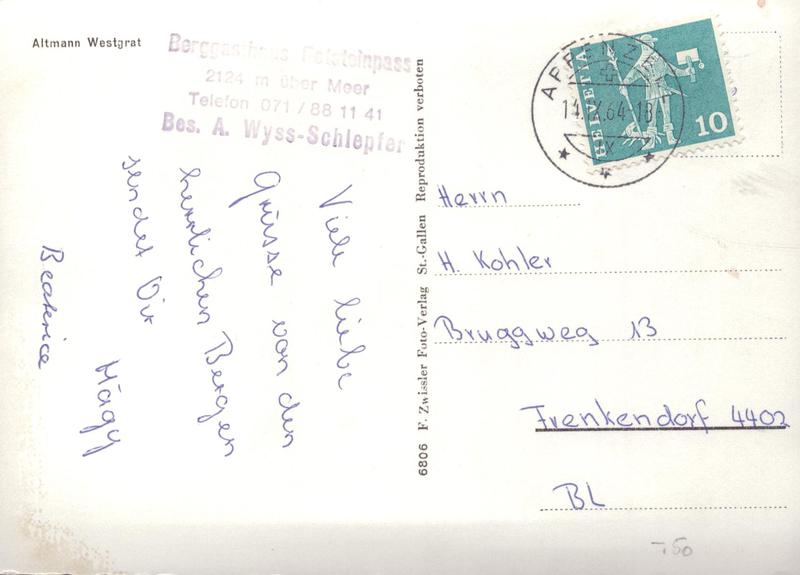 Altmann Westgrat
Berggasthaus Rotsteinpass
2124 m über Meer
Telefon 071 / 88 11 41
Bes. A. Wyss-Schlepfer
Viele liebe
Grüsse von den
herrlichen Bergen
sendet Dir
Hägy
Beatrice
6806 F. Zwissler Foto-Verlag St.-Gallen Reproduktion verboten
APPENZELL
14.IX.64-18
IX
HELVETIA
10
Herrn
H. Kohler
Bruggweg 13
Frenkendorf 4402
BL
-.50